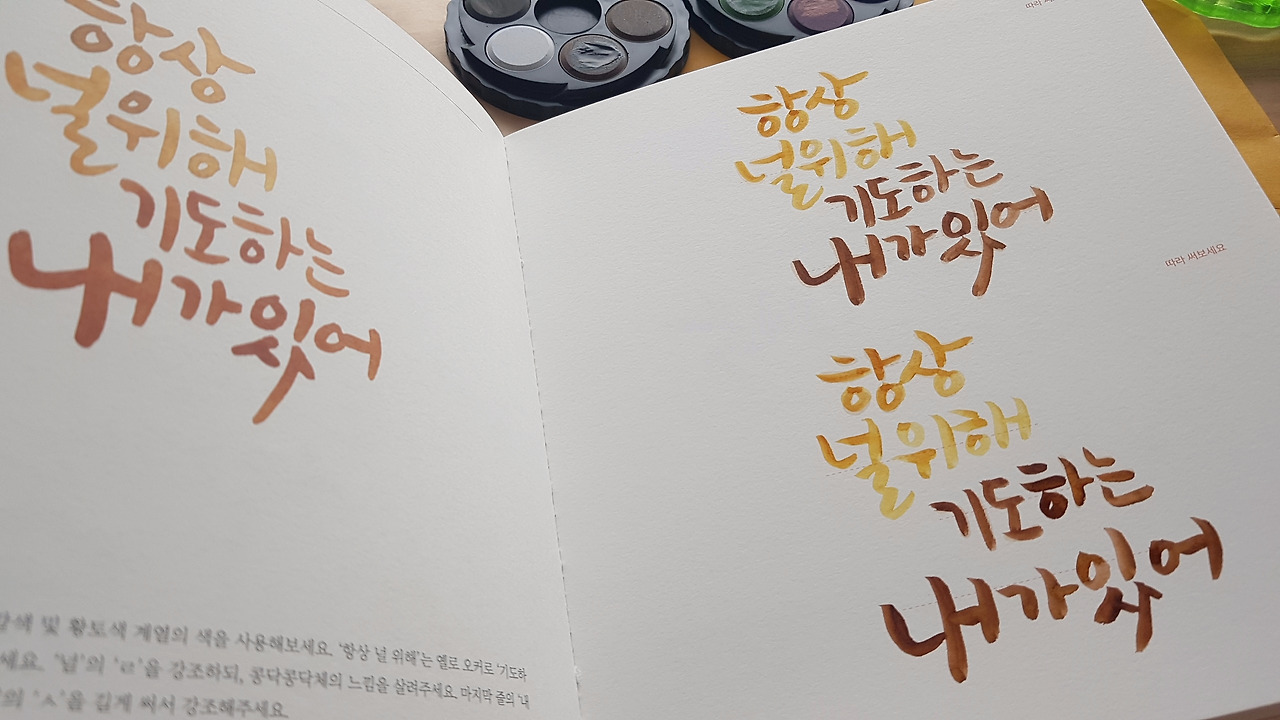 항상
널위해
기도하는
내가있어
갈색 및 황토색 계열의 색을 사용해보세요. '항상 널 위해'는 옐로 오커로 '기도하
세요. '널'의 'ㄹ'을 강조하되, 콩닥콩닥체의 느낌을 살려주세요. 마지막 줄의 '내
의 'ㅅ'을 길게 써서 강조해주세요.
따라
항상
널위해
기도하는
내가있어
따라 써보세요
항상
널위해
기도하는
내가있어